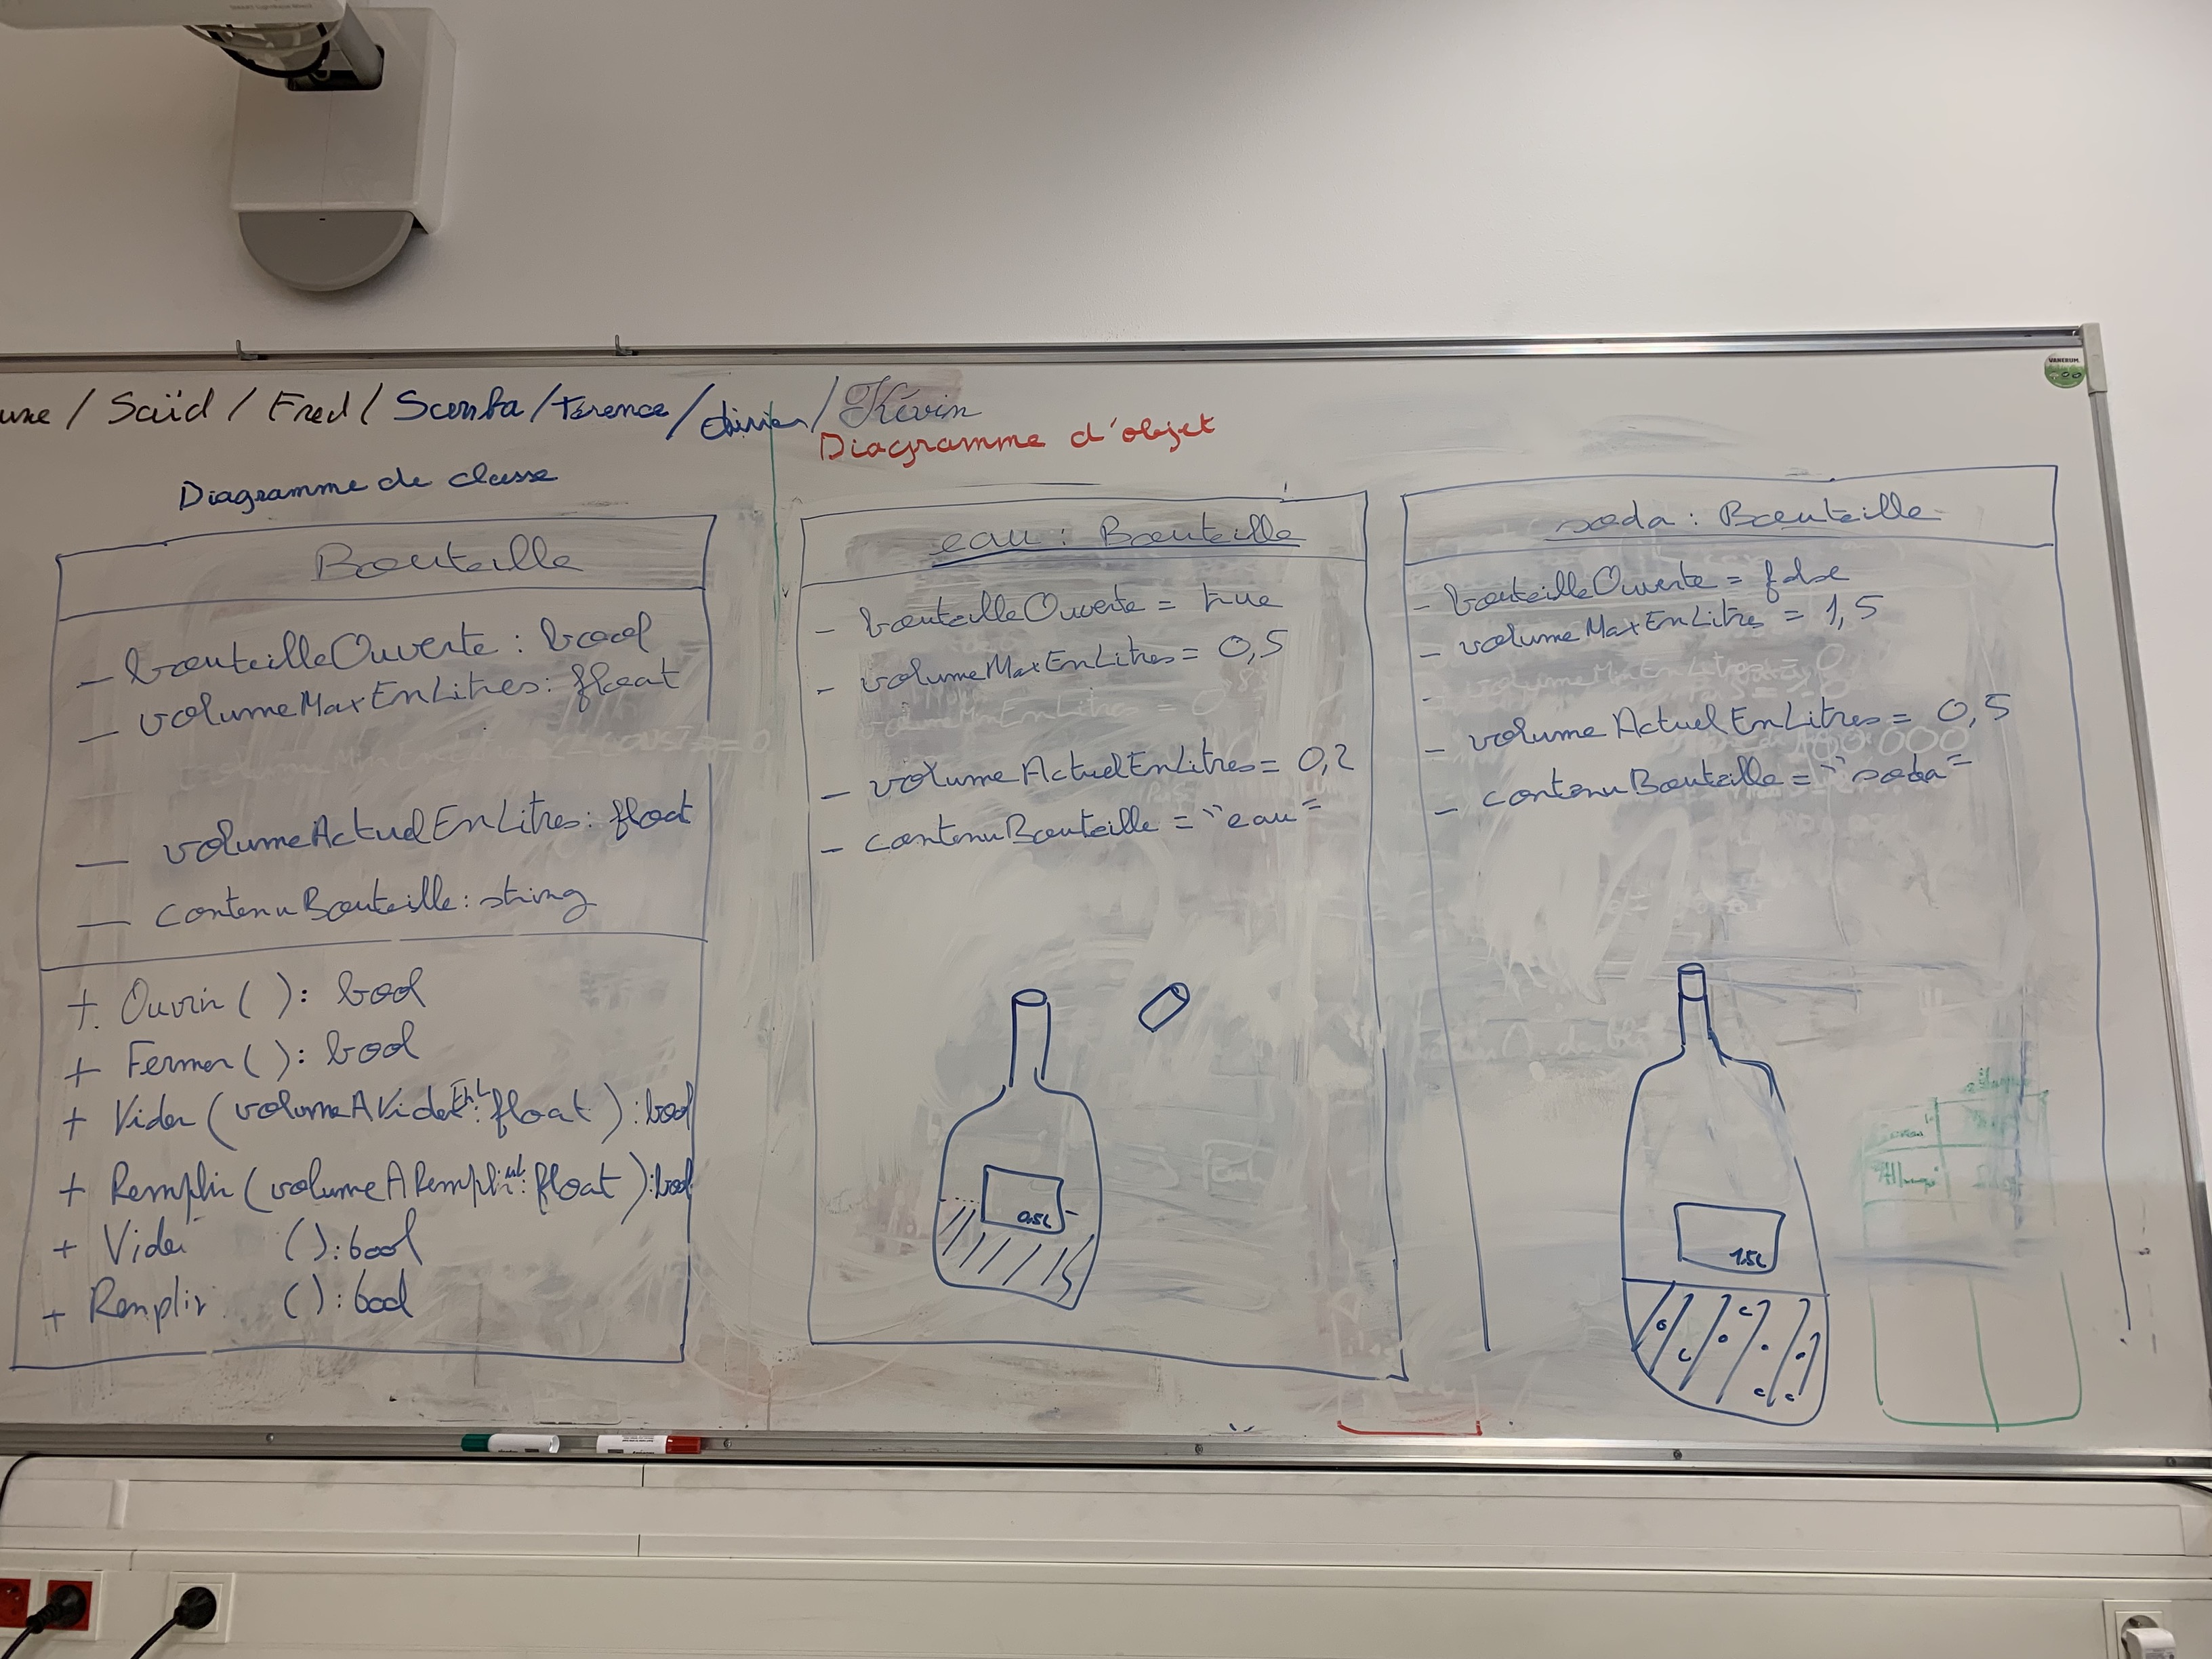 / Saïd / Fred / Scomba / Térence / / Kévin
Diagramme d'objet
Diagramme de classe
Bouteille
- bouteilleOuverte : bool
- volumeMaxEnLitres : float
- volumeActuelEnLitres : float
- contenuBouteille : string
+ Ouvrir ( ) : bool
+ Fermer ( ) : bool
+ Vider ( volumeAViderEnL : float ) : bool
+ Remplir ( volumeARemplir : float ) : bool
+ Vider ( ) : bool
+ Remplir ( ) : bool
eau : Bouteille
- bouteilleOuverte = true
- volumeMaxEnLitres = 0,5
- volumeActuelEnLitres = 0,2
- contenuBouteille = "eau"
0.5L
soda : Bouteille
- bouteilleOuverte = false
- volumeMaxEnLitres = 1,5
- volumeActuelEnLitres = 0,5
- contenuBouteille = "soda"
1.5L
VANERUM